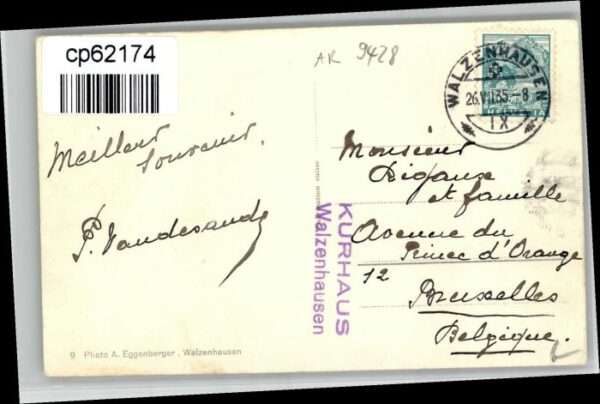 cp62174
AR 9428
WALZENHAUSEN
26.VII.35.-8
IX
Meilleur
Souvenir.
P. Vandesande
KURHAUS
Walzenhausen
Monsieur
et famille
Avenue du
Prince d'Orange
12
Bruxelles
Belgique
9 Photo A. Eggenberger, Walzenhausen